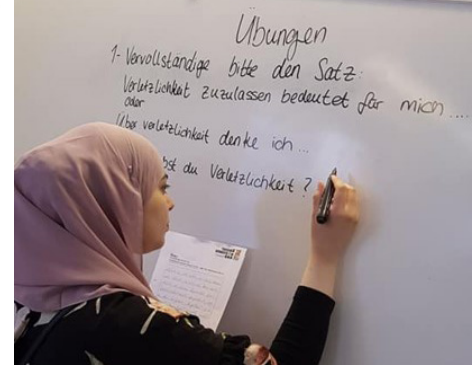 Übungen
1- Vervollständige bitte den Satz:
Verletzlichkeit zuzulassen bedeutet für mich ...
oder
Über verletzlichkeit denke ich ...
bst du Verletzlichkeit ?